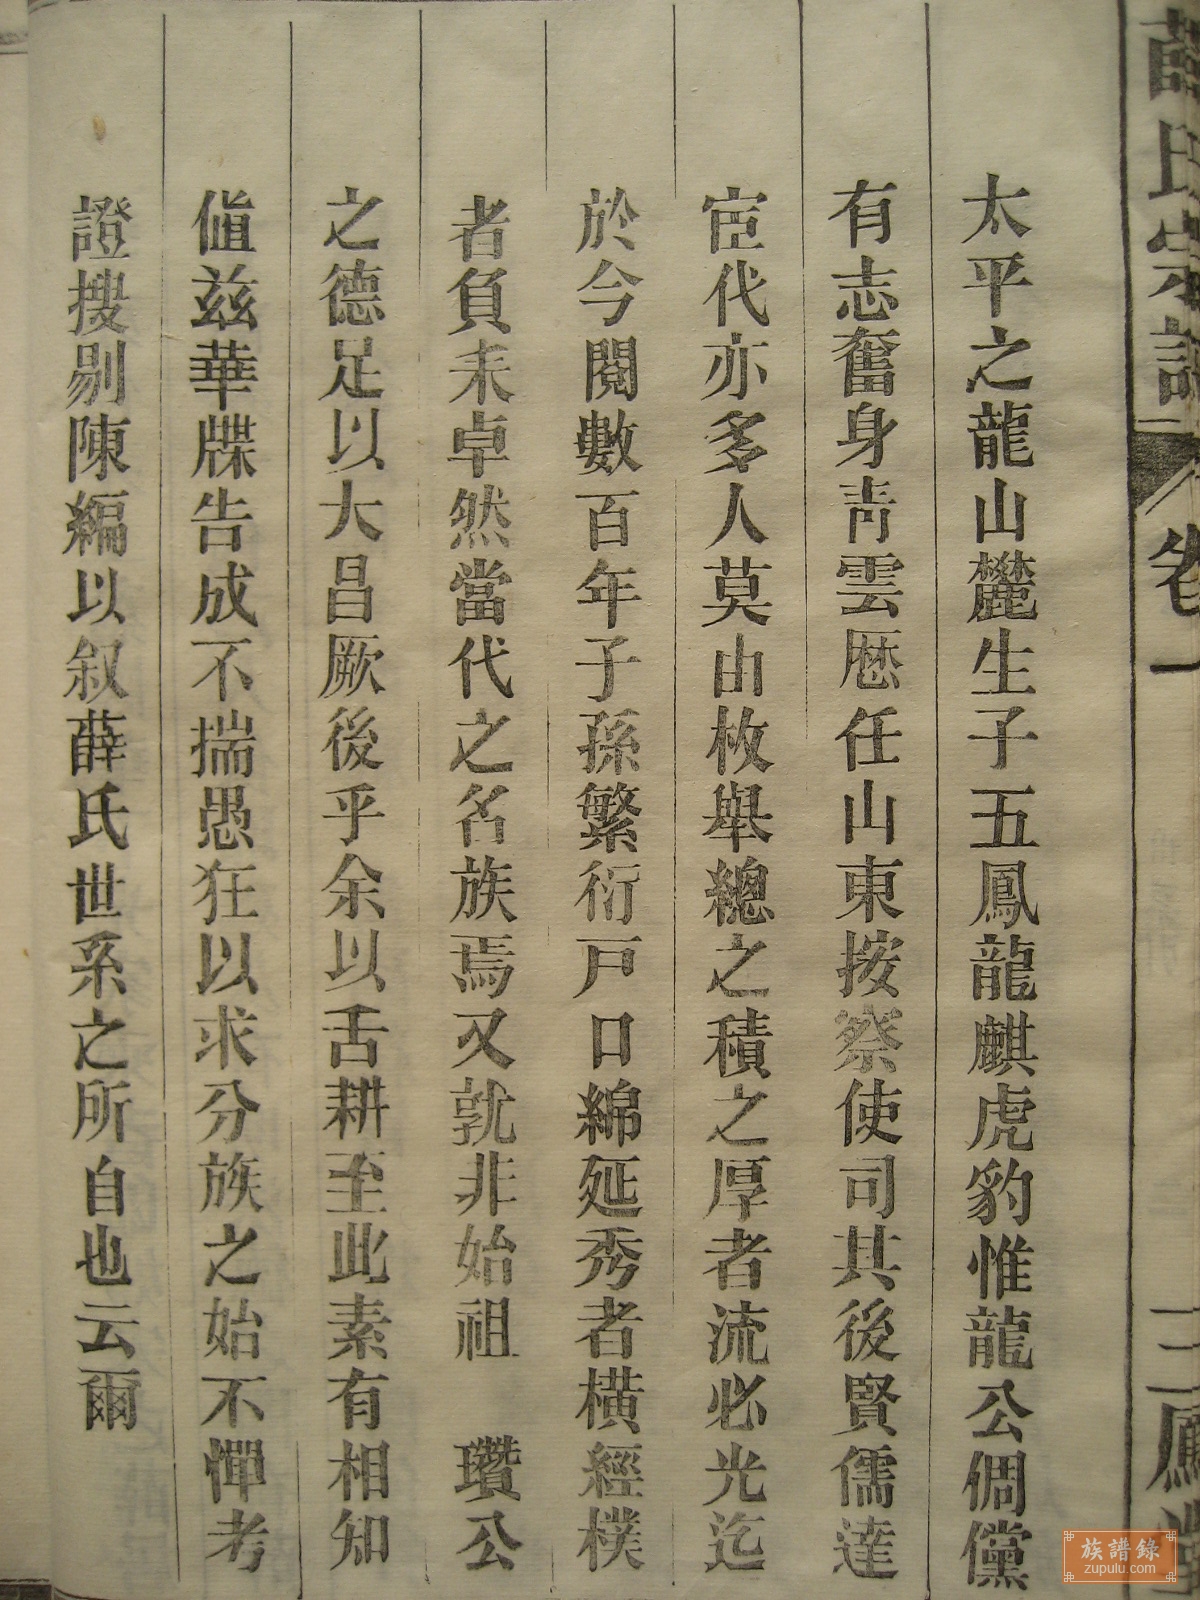 薛氏宗譜 卷一 三鳳堂
太平之龍山麓生子五鳳龍麒虎豹惟龍公倜儻
有志奮身靑雲歷任山東按察使司其後賢儒達
宦代亦多人莫由枚舉總之積之厚者流必光迄
於今閱數百年子孫繁衍戸口綿延秀者橫經樸
者負耒卓然當代之名族焉又孰非始祖 瓚公
之德足以大昌厥後乎余以舌耕至此素有相知
值兹華牒告成不揣愚狂以求分族之始不憚考
證搜剔陳編以叙薛氏世系之所自也云爾
族譜錄
zupulu.com